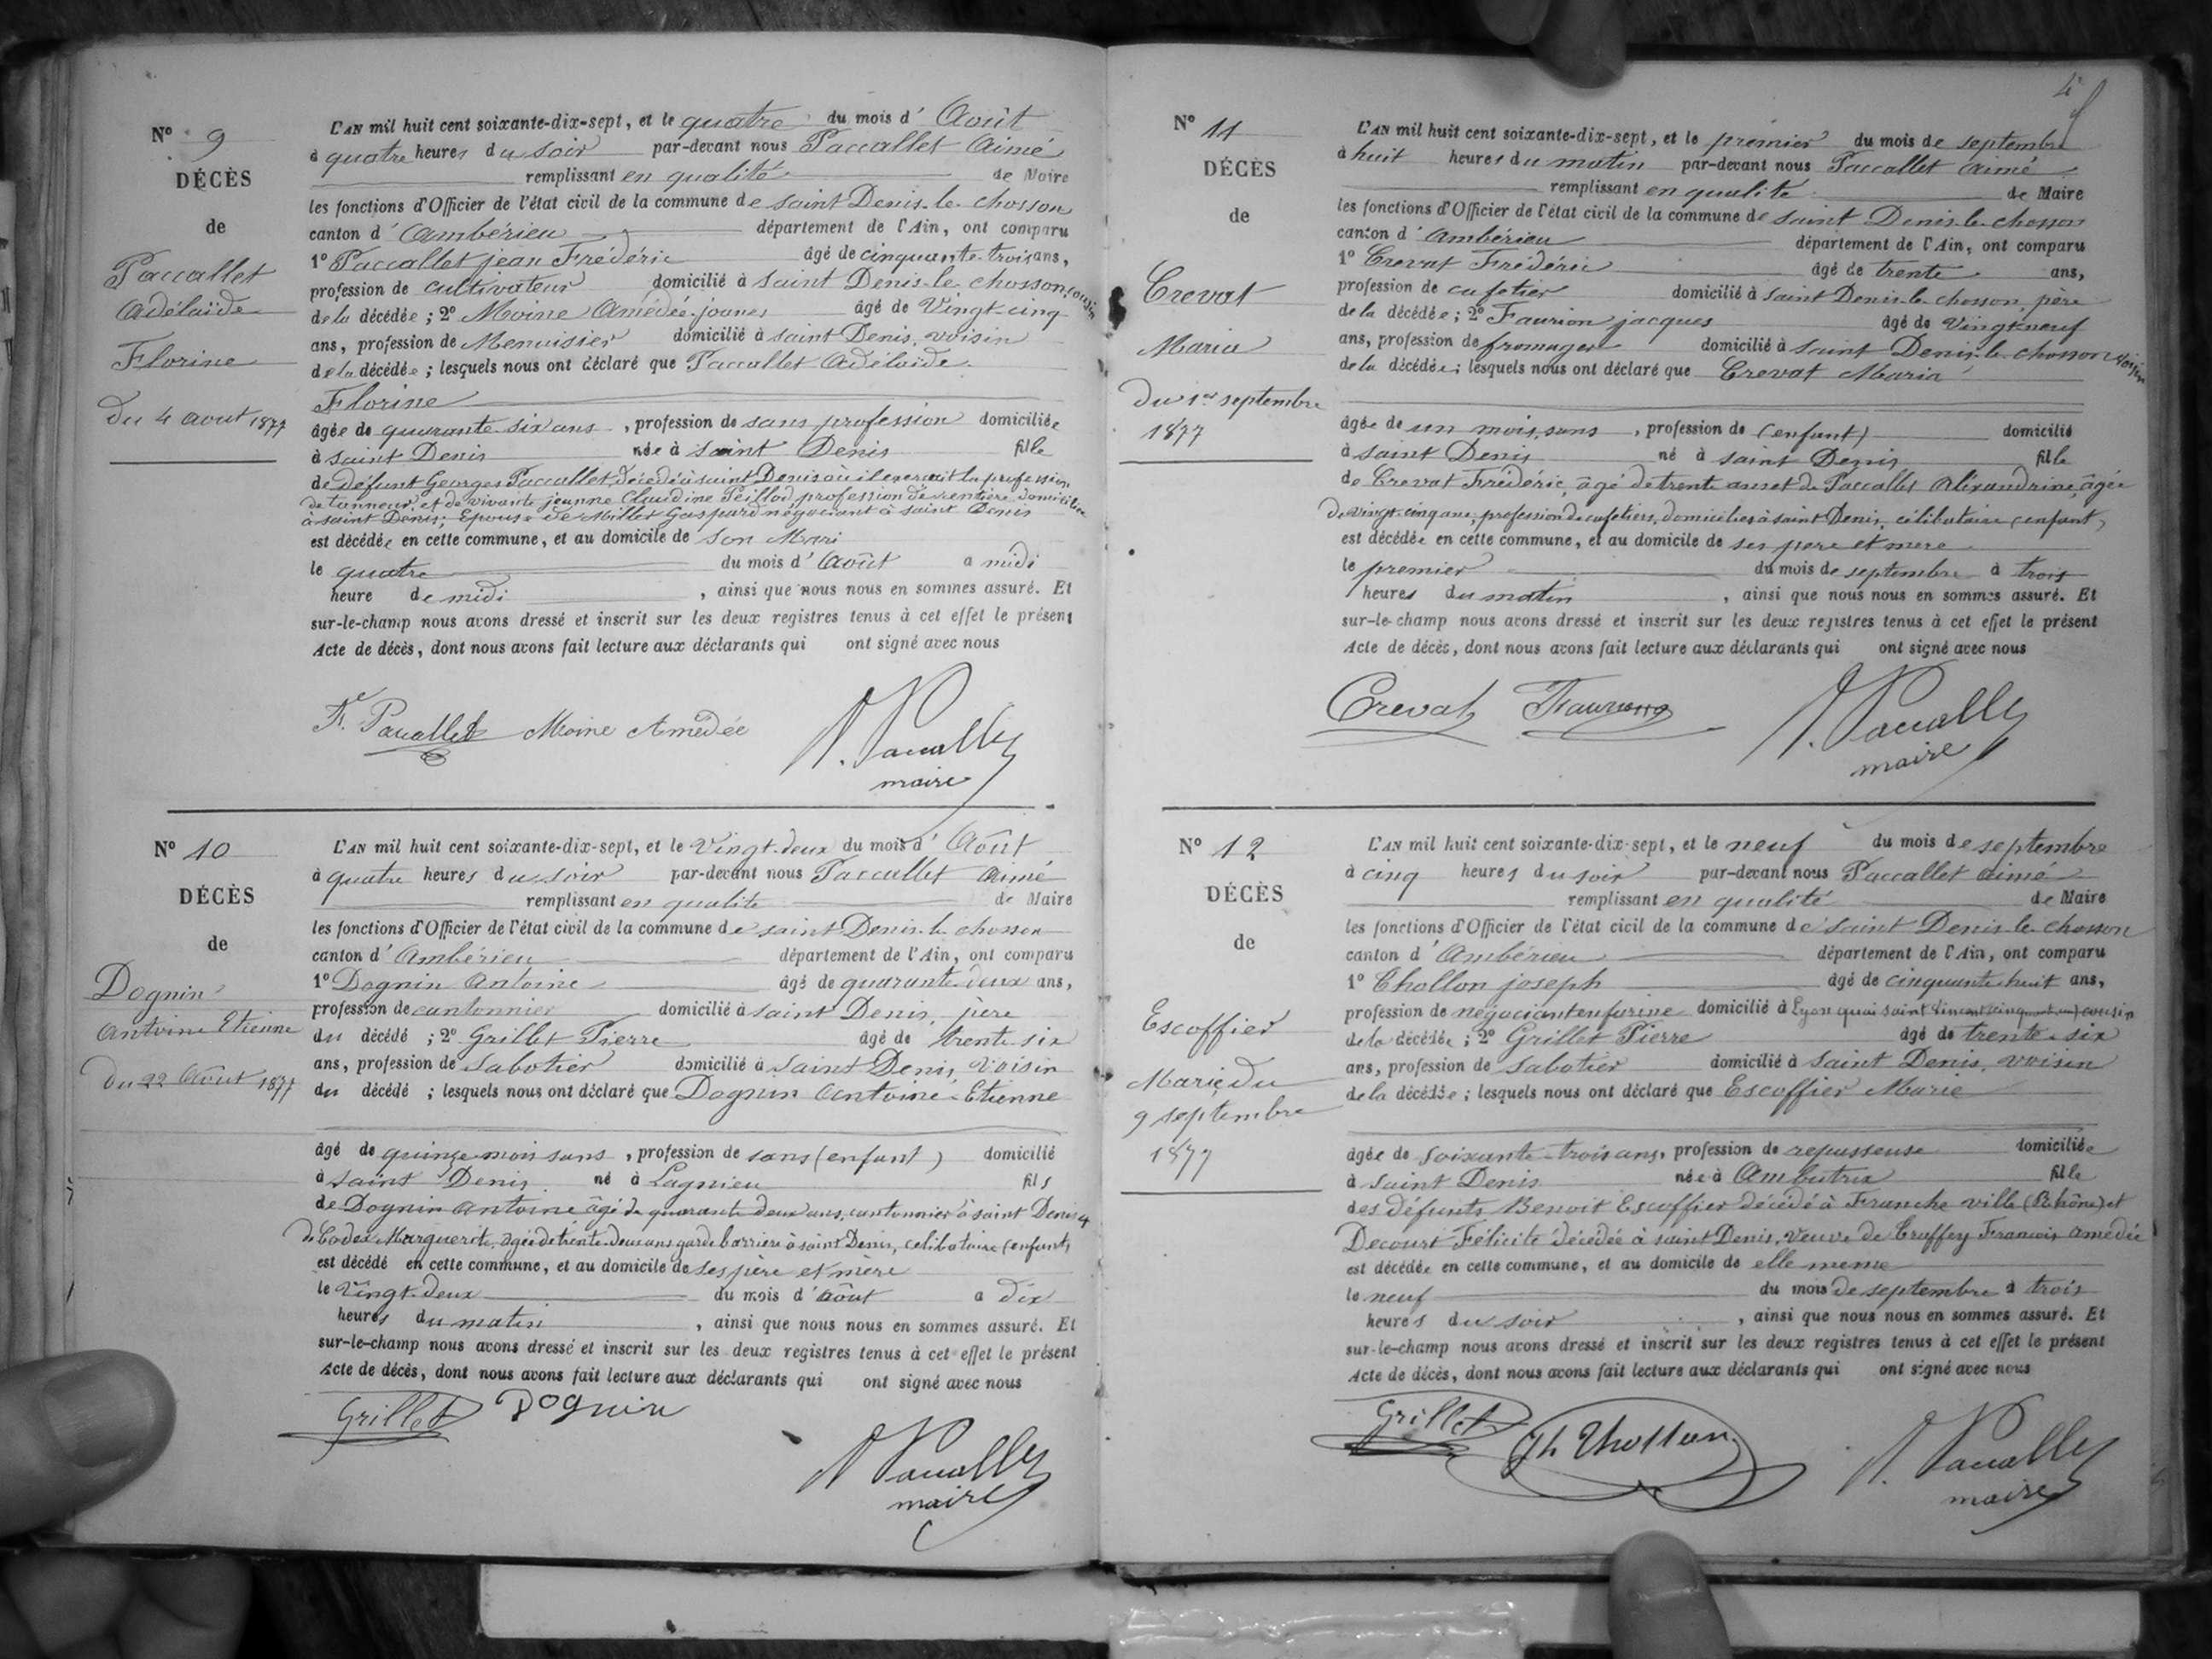 Nº 9
DÉCÈS
de
Paccallet
Adélaïde
Florine
du 4 aout 1877
L'AN mil huit cent soixante-dix-sept, et le quatre du mois d' Août
à quatre heures du soir par-devant nous Paccallet Aimé
remplissant en qualité de Maire
les fonctions d'Officier de l'état civil de la commune de saint Denis-le-chosson
canton d' Ambérieu département de l'Ain, ont comparu
1º Paccallet jean Frédéric âgé de cinquante-trois ans,
profession de cultivateur domicilié à saint Denis-le-chosson, cousin
de la décédée ; 2º Moine Amédée joanes âgé de Vingt-cinq
ans, profession de Menuisier domicilié à saint Denis, voisin
de la décédée ; lesquels nous ont déclaré que Paccallet Adélaïde
Florine
âgée de quarante-six ans , profession de sans profession domiciliée
à saint Denis née à saint Denis fille
de défunt Georges Paccallet, décédé à saint Denis où il exerçait la profession
de tanneur, et de vivante jeanne Claudine Peillod profession de rentière, domiciliée
à saint Denis; Epouse de Millet Gaspard négociant à saint Denis
est décédée en cette commune, et au domicile de son Mari
le quatre du mois d' Août a midi
heure de midi , ainsi que nous nous en sommes assuré. Et
sur-le-champ nous avons dressé et inscrit sur les deux registres tenus à cet effet le présent
Acte de décès, dont nous avons fait lecture aux déclarants qui ont signé avec nous
F. Paccallet Moine Amédée
A. Paccallet
maire
Nº 10
DÉCÈS
de
Dognin
Antoine Etienne
du 22 Août 1877
L'AN mil huit cent soixante-dix-sept, et le Vingt-deux du mois d' Août
à quatre heures du soir par-devant nous Paccallet Aimé
remplissant en qualité de Maire
les fonctions d'Officier de l'état civil de la commune de saint Denis-le-chosson
canton d' Ambérieu département de l'Ain, ont comparu
1º Dognin Antoine âgé de quarante-deux ans,
profession de cantonnier domicilié à saint Denis, père
du décédé ; 2º Grillet Pierre âgé de trente-six
ans, profession de Sabotier domicilié à saint Denis, voisin
du décédé ; lesquels nous ont déclaré que Dognin Antoine-Etienne
âgé de quinze mois sans , profession de sans (enfant) domicilié
à saint Denis né à Lagnieu fils
de Dognin Antoine âgé de quarante-deux ans, cantonnier à saint Denis et
de Marguerite, âgée de trente-deux ans garde barrière à saint Denis, célibataire (enfant)
est décédé en cette commune, et au domicile de ses père et mère
le Vingt-deux du mois d' Août a dix
heures du matin , ainsi que nous nous en sommes assuré. Et
sur-le-champ nous avons dressé et inscrit sur les deux registres tenus à cet effet le présent
Acte de décès, dont nous avons fait lecture aux déclarants qui ont signé avec nous
Grillet Dognin
A. Paccallet
maire
Nº 11
DÉCÈS
de
Crevat
Maria
Du 1er septembre
1877
L'AN mil huit cent soixante-dix-sept, et le premier du mois de septembre
à huit heures du matin par-devant nous Paccallet Aimé
remplissant en qualité de Maire
les fonctions d'Officier de l'état civil de la commune de saint Denis-le-chosson
canton d' Ambérieu département de l'Ain, ont comparu
1º Crevat Frédéric âgé de trente ans,
profession de cafetier domicilié à saint Denis-le-chosson, père
de la décédée ; 2º Faurion jacques âgé de vingt-neuf
ans, profession de fromager domicilié à saint Denis-le-chosson, voisin
de la décédée ; lesquels nous ont déclaré que Crevat Maria
âgée de un mois, sans , profession de (enfant) domicilié
à saint Denis né à saint Denis fille
de Crevat Frédéric, âgé de trente ans et de Paccallet Alexandrine, âgée
de vingt-cinq ans, profession de cafetiers, domiciliés à saint Denis, célibataire (enfant)
est décédée en cette commune, et au domicile de ses pere et mere
le premier du mois de septembre à trois
heures du matin , ainsi que nous nous en sommes assuré. Et
sur-le-champ nous avons dressé et inscrit sur les deux registres tenus à cet effet le présent
Acte de décès, dont nous avons fait lecture aux déclarants qui ont signé avec nous
Crevat Faurion
A. Paccallet
maire
Nº 12
DÉCÈS
de
Escoffier
Marie, du
9 septembre
1877
L'AN mil huit cent soixante-dix-sept, et le neuf du mois de septembre
à cinq heures du soir par-devant nous Paccallet aimé
remplissant en qualité de Maire
les fonctions d'Officier de l'état civil de la commune de saint Denis-le-chosson
canton d' Ambérieu département de l'Ain, ont comparu
1º Chollon joseph âgé de cinquante-huit ans,
profession de négociant en farine domicilié à Lyon quai saint Vincent cousin
de la décédée ; 2º Grillet Pierre âgé de trente-six
ans, profession de sabotier domicilié à saint Denis, voisin
de la décédée ; lesquels nous ont déclaré que Escoffier Marie
âgée de soixante-trois ans, profession de repasseuse domiciliée
à saint Denis née à Ambutrix fille
des défunts Benoit Escoffier décédé à Franche ville (Rhône) et
Decourt Félicité décédée à saint Denis, veuve de Truffey François Amédée
est décédée en cette commune, et au domicile de elle meme
le neuf du mois de septembre à trois
heures du soir , ainsi que nous nous en sommes assuré. Et
sur-le-champ nous avons dressé et inscrit sur les deux registres tenus à cet effet le présent
Acte de décès, dont nous avons fait lecture aux déclarants qui ont signé avec nous
Grillet Jh Chollon
A. Paccallet
maire